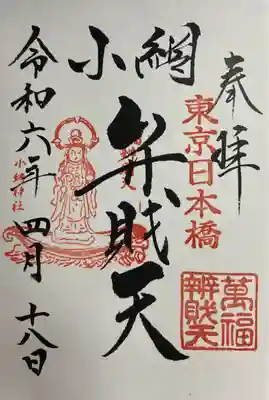 奉拝
東京日本橋
小網
弁財天
萬福
辨財天
小網神社
令和六年 四月 十八日